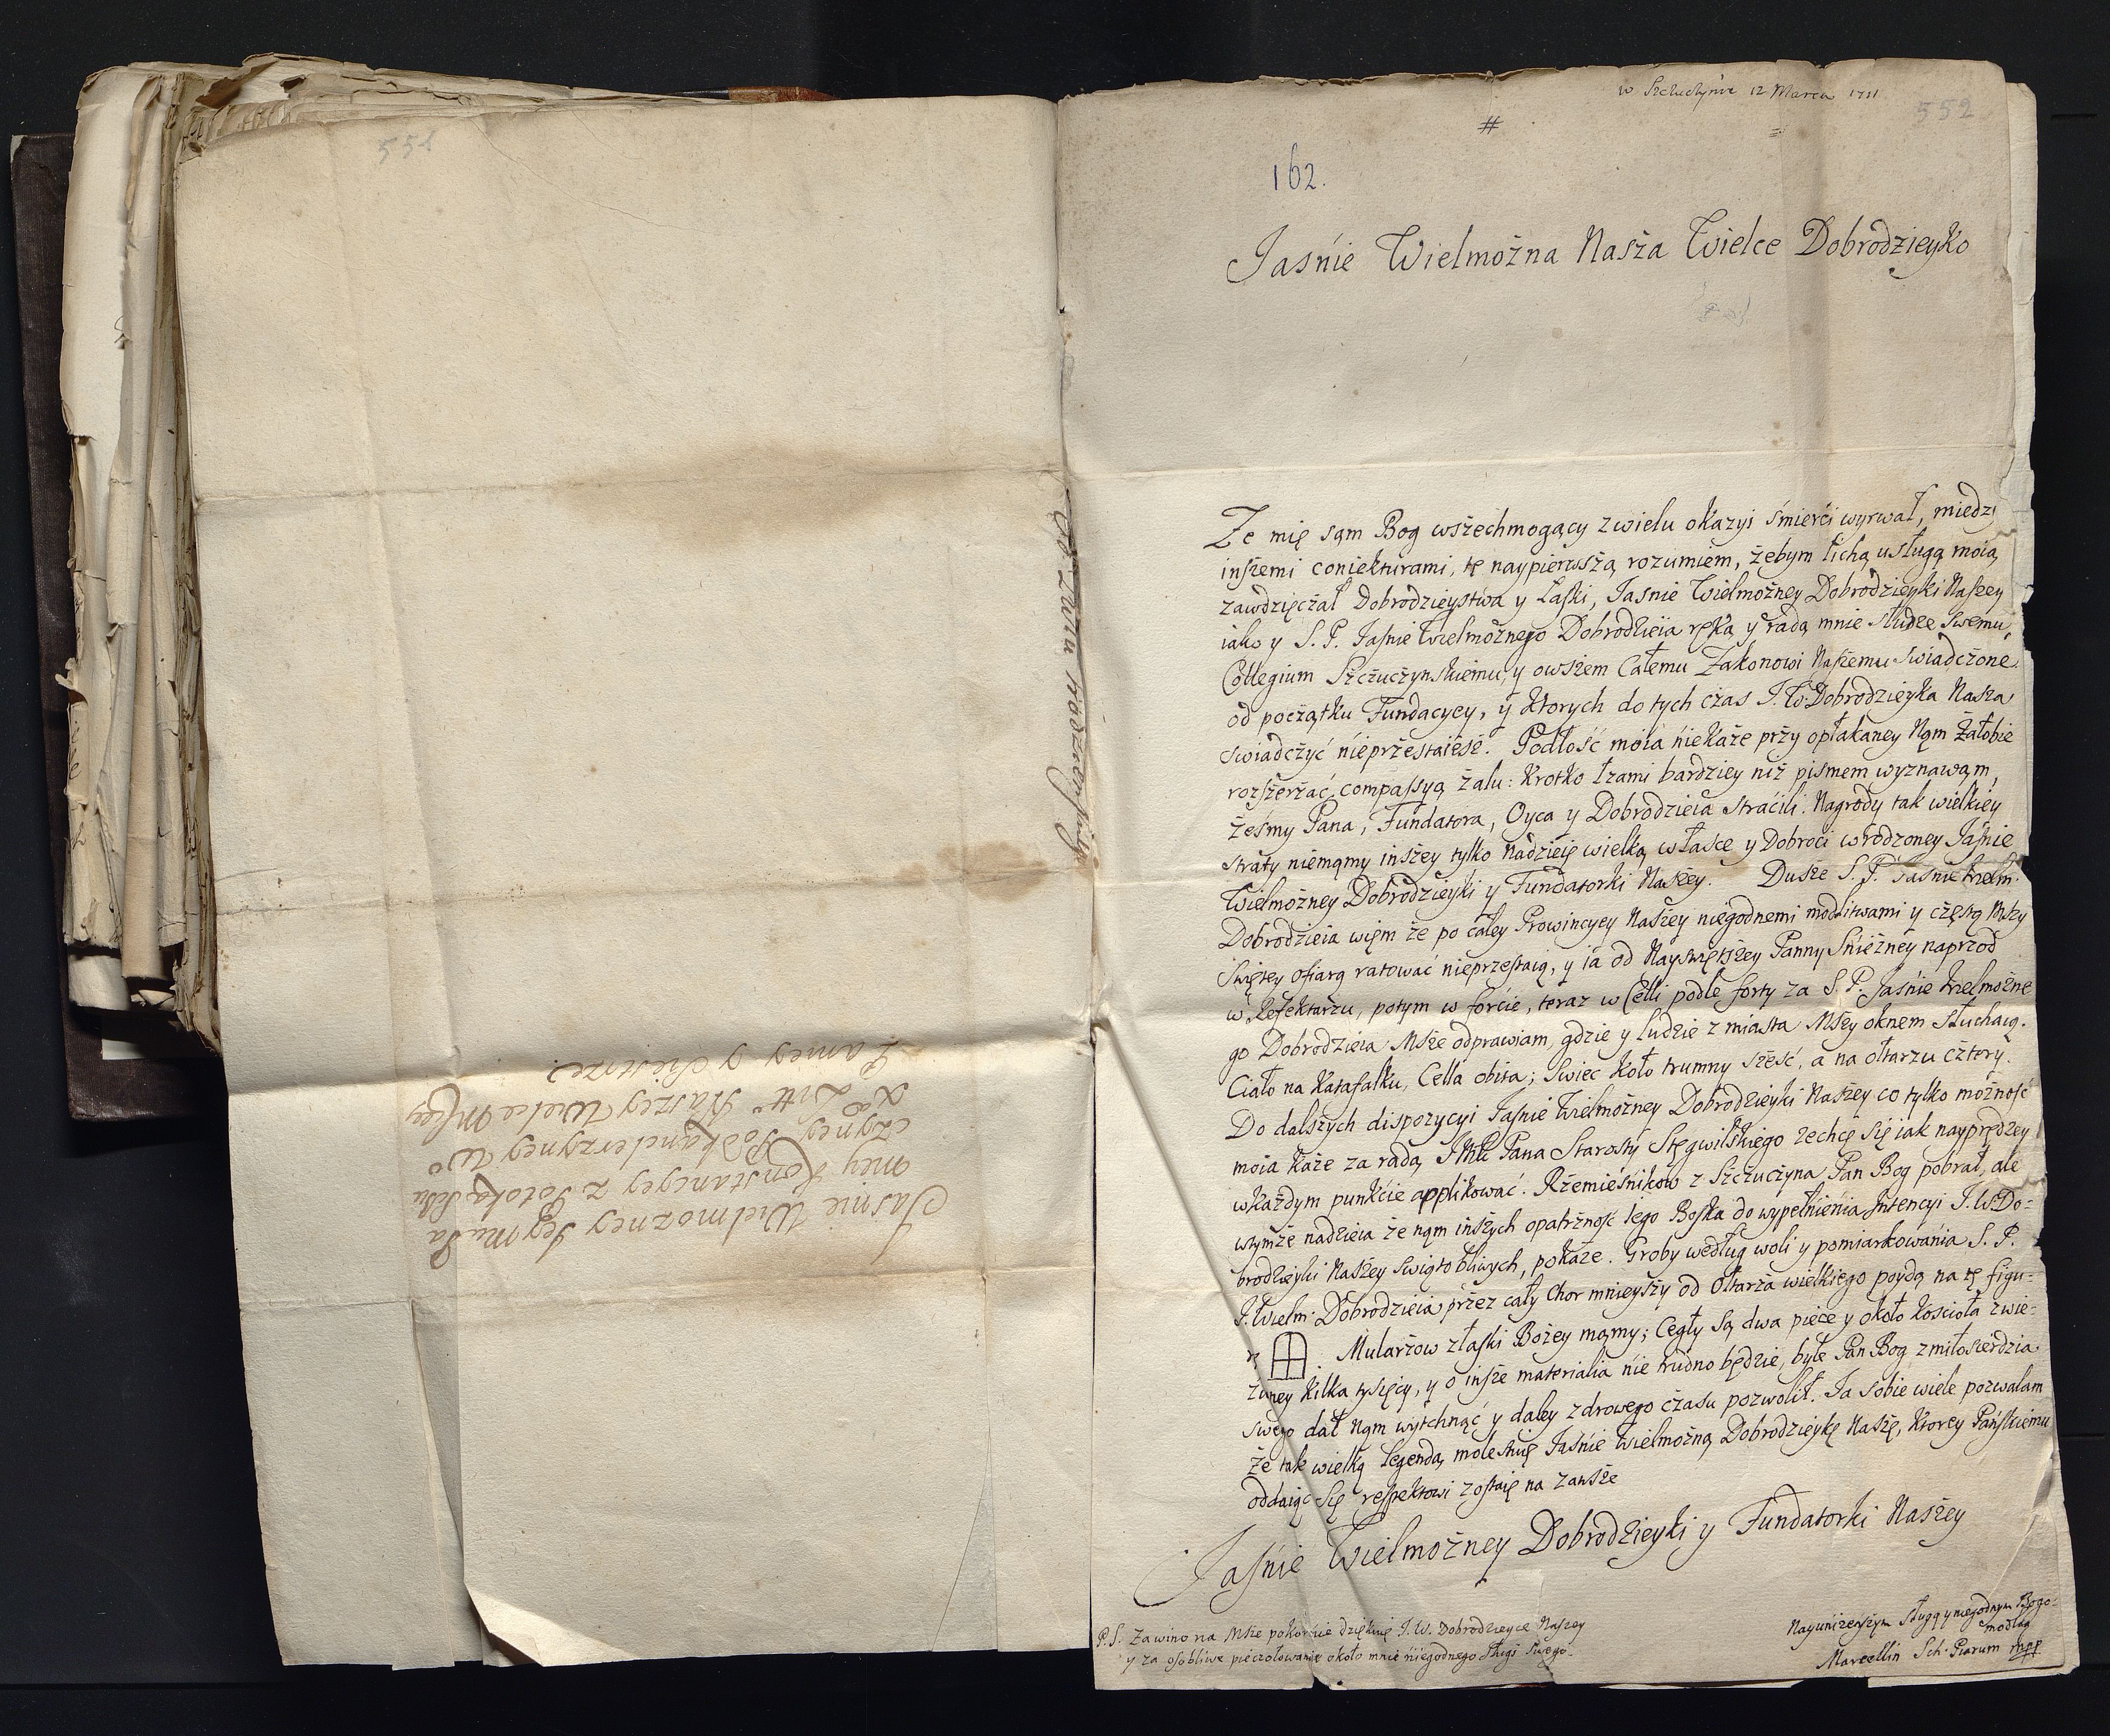 551
Jaśnie Wielmożney Jey Mci Pa
niey Konstancyey z Potoka
czyney Podkanclerzyney W o
Xa Litt° Naszey Wielce Mściey
Paniey y Siestrze
w Szczuczynie 12 Marca 1711
552
#
162.
Jaśnie Wielmożna Nasża Wielce Dobrodzieyko
Że mię sąm Bog wszechmogący z wielu okazyi śmierći wyrwał, miedzy
inszemi coniekturami, tę naypierwszą rozumiem, żebym lichą usługą moią
zawdzięczał Dobrodzieystwa y Łaski, Jasnie Wielmożney Dobrodzieyki Naszey
iako y S. P. Jaśnie Wielmożnego Dobrodzieia ręką y radą mnie słudze swemu,
Collegium Szczuczynskiemu, y owszem Całemu Zakonowi Naszemu swiadczone
od początku Fundacyey, y ktorych do tych czas J. W. Dobrodzieyka Nasza
swiadczyć nieprzestaiesz. Podłość moia niekaże przy opłakaney Nąm Żałobie
rozszerzać compassyą żalu: krotko łzami bardziey niż pismem wyznawąm,
żeśmy Pana, Fundatora, Oyca y Dobrodzieia stracili. Nagrody tak wielkiey
straty niemąmy inszey tylko nadzieię wielką w łasce y Dobroci wrodzoney Jaśnie
Wielmożney Dobrodzieyki y Fundatorki Naszey. Dusze S. P. Jaśnie Wielm:
Dobrodzieia więm że po całey Prowincyey Naszey niegodnemi modlitwami y częstą Mszy
Swiętey ofiarą ratować nieprzestaią, y ia od Nayswiętszey Panny Snieżney naprzod
w Refektarzu, potym w forcie, teraz w Celli podle forty za S. P. Jaśnie Wielmożne
go Dobrodzieia Msze odprawiam, gdzie y ludzie z miasta Mszy oknem słuchaią.
Ciało na Katafalku, Cella obita; swiec koło trumny sześć, a na ołtarzu cztery.
Do dalszych dispozycyi Jaśnie Wielmożney Dobrodzieyki Naszey co tylko możność
moia każe za radą Pana Starosty Stęgwilskiego zechcę się iak nayprędzey
w każdym punkćie applikować. Rzemieśnikow z Szczuczyna Pan Bog pobrał, ale
w tymże nadzieia że nąm inszych opatrzność iego Boska do wypełnienia Intencyi J. W Do=
brodzieyki Naszey swiątobliwych, pokaże. Groby według woli y pomiarkowania S. P.
J. Wielm: Dobrodzieia przez cały Chor mnieyszy od Ołtarza wielkiego poydą na tę figu=
rę . Mularzow z łaski Bożey mąmy; Cegły są dwa piece y około kościoła zwie=
zioney kilka tysięcy, y o insze materialia nie trudno będzie, byle Pan Bog z miłosierdzia
swego dał nąm wytchnąć y daley zdrowego czasu pozwolił. Ja sobie wiele pozwalam
że tak wielką Legendą molestuię Jaśnie Wielmożną Dobrodzieykę Naszę, ktorey Pańskiemu
oddaiąc się respektowi zostaię na zawsze
Jaśnie Wielmożney Dobrodzieyki y Fundatorki Naszey
Nayuniżenszym sługą y niegodnym Bogo=
modlcą
Marcellin Sch: Piarum mpp
P.S. Za wino na Msze pokornie dziękuię J. W. Dobrodzieyce Naszey
y za osobliwe pieczołowanie około mnie niegodnego sługi Swego.